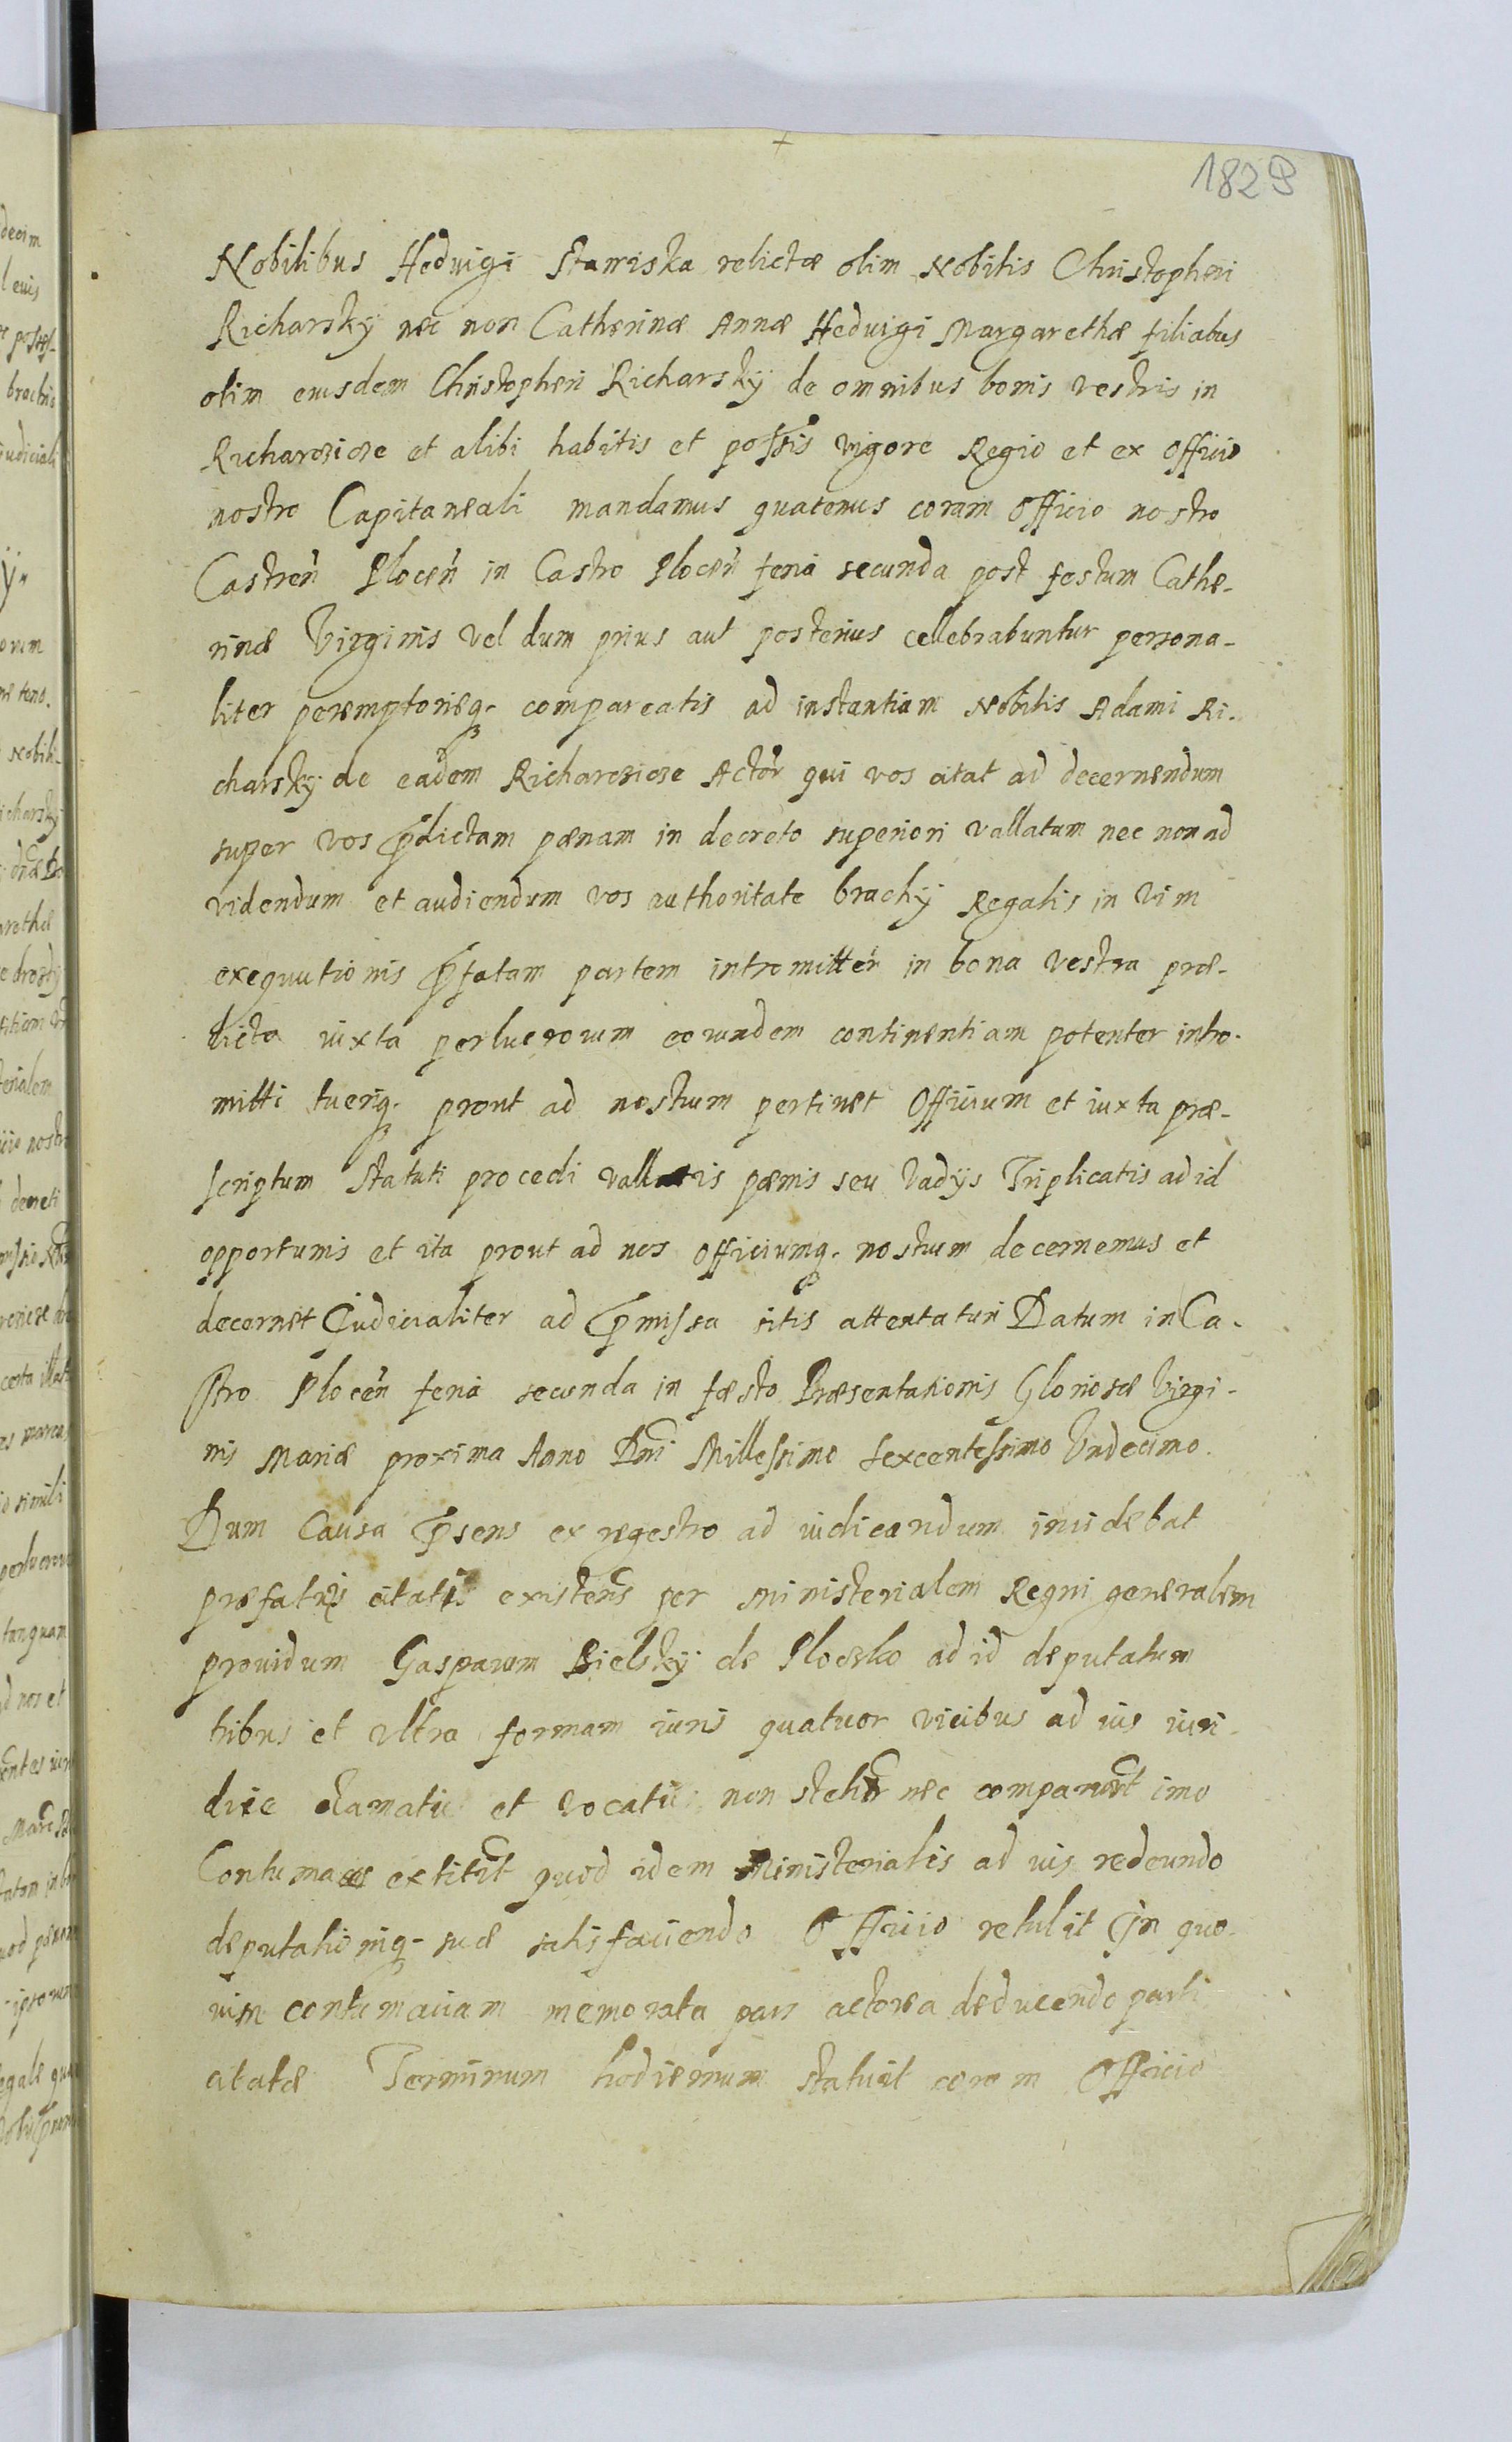 1829
Nobilibus Hedvigi Stawiska relictæ olim Nobilis Christopheri
Richarsky nec non Catherinæ Annæ Hedvigi Margarethæ filiabus
olim eiusdem Christopheri Richarskÿ de omnibus bonis vestris in
Richarcicze et alibi habitis et possis vigore Regio et ex officio
nostro Capitaneali mandamus quatenus coram Officio nostro
Castren Plocen in Castro Plocen feria secunda post festum Cathe-
rinæ Virginis vel dum prius aut posterius cellebrabuntur persona-
liter peremptorieq. compareatis ad instantiam Nobilis Adami Ri-
charskÿ de eadem Richarcicze Actor qui vos citat ad decernendum
super vos pdictam pænam in decreto superiori vallatam nec non ad
videndum et audiendum vos authoritate brachÿ Regalis in vim
exequutionis pfatam partem intromitter in bona vestra præ-
dicta iuxta perlucrorum eorundem continentiam potenter intro-
mitti tueriq. prout ad nostrum pertinet Officium et iuxta præ-
scriptum statuti procedi vallatis pænis seu vadÿs Triplicatis ad id
opportunis et ita prout ad nos officiumq. nostrum decernemus et
decernet Iudicialiter ad pmissa sitis attentaturi Datum in Ca-
stro Plocen feria secunda in fæsto Præsentationis Gloriosæ Virgi-
nis Mariæ proxima Anno Dni Millessimo sexcentessimo Undecimo.
Dum Causa psens ex regestro ad iudicandum incidebat
præfatis citatis existens per Ministerialem Regni generalem
prouidum Gasparum Bielskÿ de Plocko ad id deputatum
tribus et ultra formam iuris quatuor vicibus ad ius iuri-
dice clamatis et vocatis non stetit nec comparuit imo
Contumaces extitit quod idem Ministerialis ad ius redeundo
deputationiq. suæ satisfaciendo Officio retulit In quo-
rum contumaciam memorata pars actorea deducendo parti
citatæ Terminum hodiernum statuit coram Officio